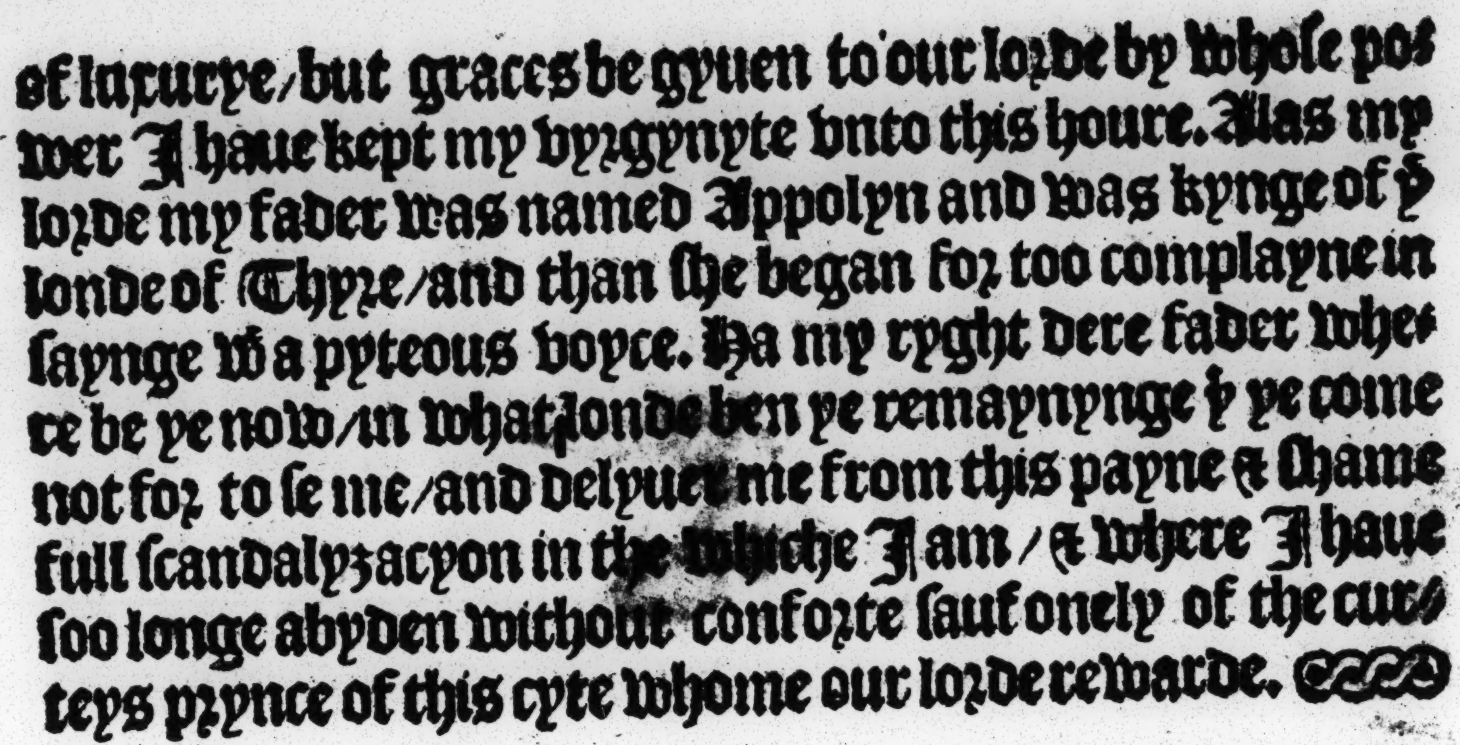 of luxurye/but graces be gyuen to our lorde by whose po⸗
wer I haue kept my vyrgynyte vnto this houre. Alas my
lorde my fader was named Appolyn and was kynge of yͤ
londe of Thyre/and than ſhe began for too complayne in
ſaynge wͭ a pyteous voyce. Ha my ryght dere fader whe⸗
re be ye now/in what londe ben ye remaynynge yͭ ye come
not for to ſe me/and delyuer me from this payne & ſhame
full ſcandalyzacyon in the whiche I am/& where I haue
ſoo longe abyden without conforte ſauf onely of the cur⸗
teys prynce of this cyte whome our lorde rewarde.